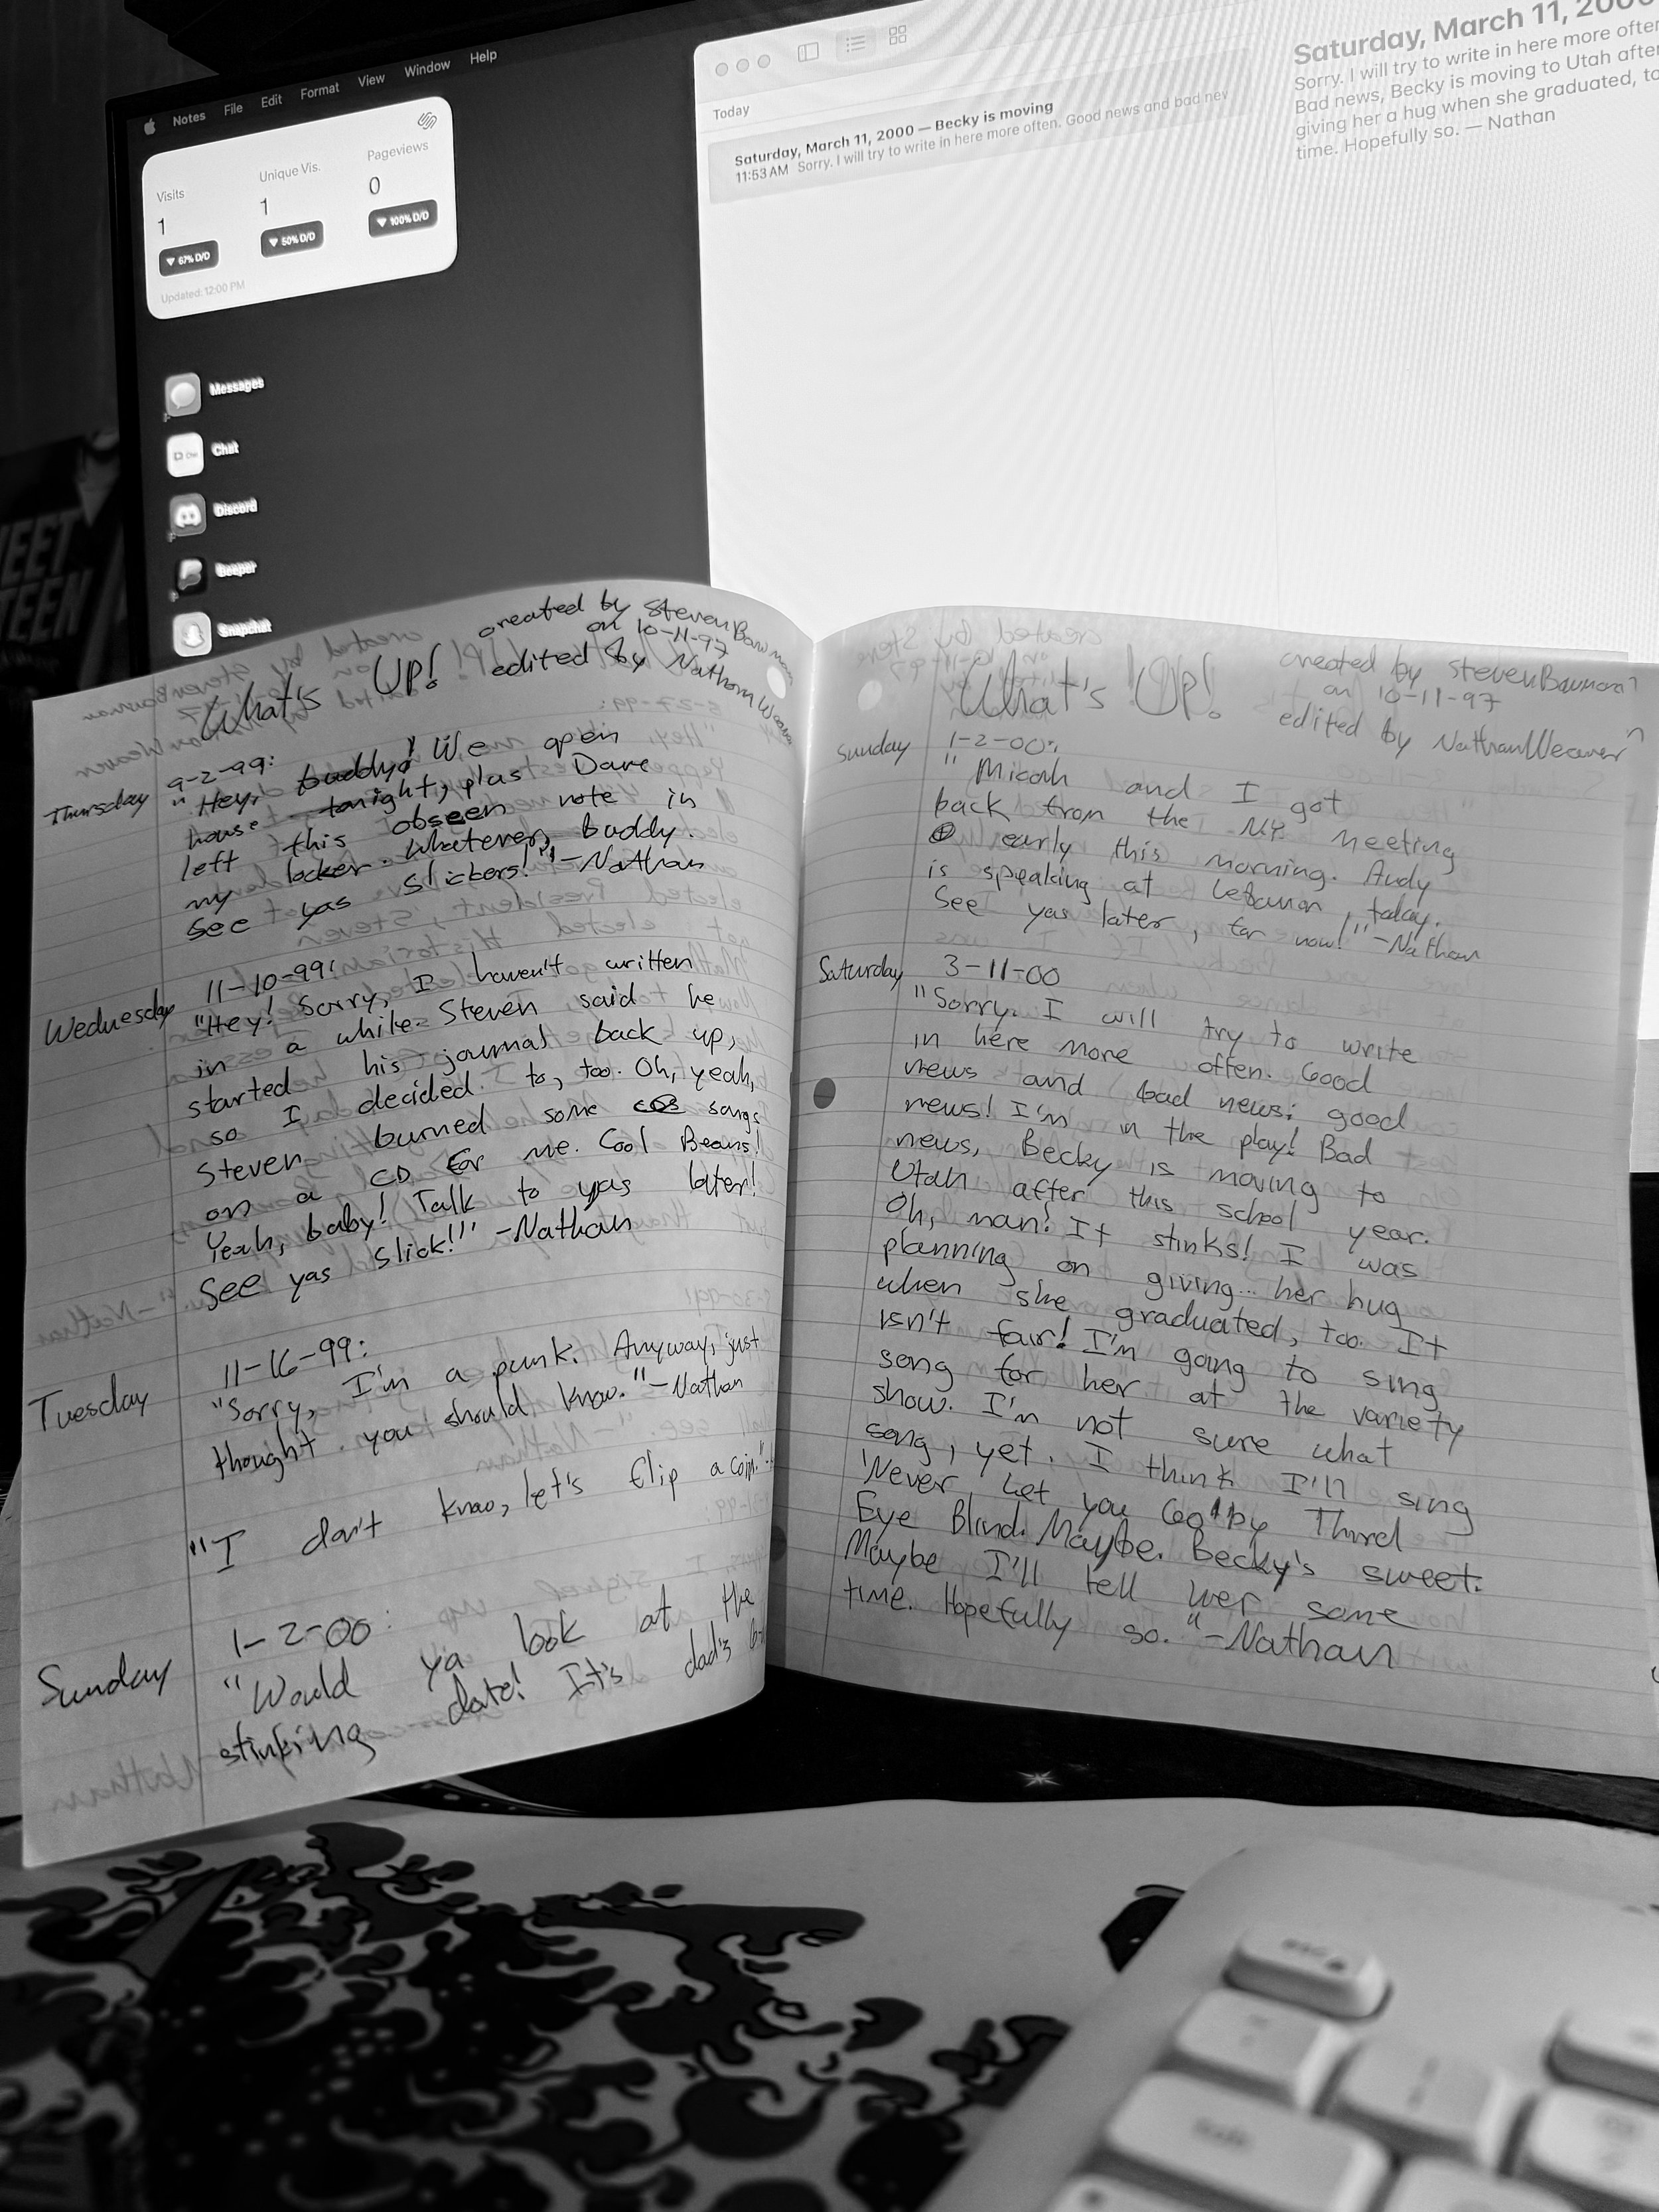 Notes File Edit Format View Window Help
Visits
1
67% D/D
Unique Vis.
1
50% D/D
Pageviews
0
100% D/D
Updated: 12:00 PM
Messages
Chat
Discord
Beeper
Snapchat
Today
Saturday, March 11, 2000 — Becky is moving
11:53 AM Sorry. I will try to write in here more often. Good news and bad nev
Saturday, March 11, 2000
Sorry. I will try to write in here more often
Bad news, Becky is moving to Utah after
giving her a hug when she graduated, to
time. Hopefully so. — Nathan
What's UP!
created by Steven Bauman
on 10-11-97
edited by Nathan Weaver
Thursday 9-2-99:
"Hey, buddy! We open
house tonight, plus Dave
left this obseen note in
my locker. Whatever, buddy.
See yas slickers!" -Nathan
Wednesday 11-10-99:
"Hey! Sorry, I haven't written
in a while. Steven said he
started his journal back up,
so I decided to, too. Oh, yeah,
Steven burned some songs
on a CD for me. Cool Beans!
Yeah, baby! Talk to yas later!
See yas slick!" -Nathan
Tuesday 11-16-99:
"Sorry, I'm a punk. Anyway, just
thought you should know." -Nathan
"I don't know, let's flip a coin."
Sunday 1-2-00:
"Would ya look at the
stinking date! It's dad's
What's UP!
created by Steven Bauman
on 10-11-97
edited by Nathan Weaver
Sunday 1-2-00:
"Micah and I got
back from the NY meeting
early this morning. Andy
is speaking at Lebanon, today.
See yas later, for now!" -Nathan
Saturday 3-11-00
"Sorry. I will try to write
in here more often. Good
news and bad news; good
news! I'm in the play! Bad
news, Becky is moving to
Utah after this school year.
Oh, man! It stinks! I was
planning on giving her hug
when she graduated, too. It
isn't fair! I'm going to sing
song for her at the variety
show. I'm not sure what
song, yet. I think I'll sing
'Never Let you Go' by Third
Eye Blind. Maybe. Becky's sweet.
Maybe I'll tell her some
time. Hopefully so." -Nathan